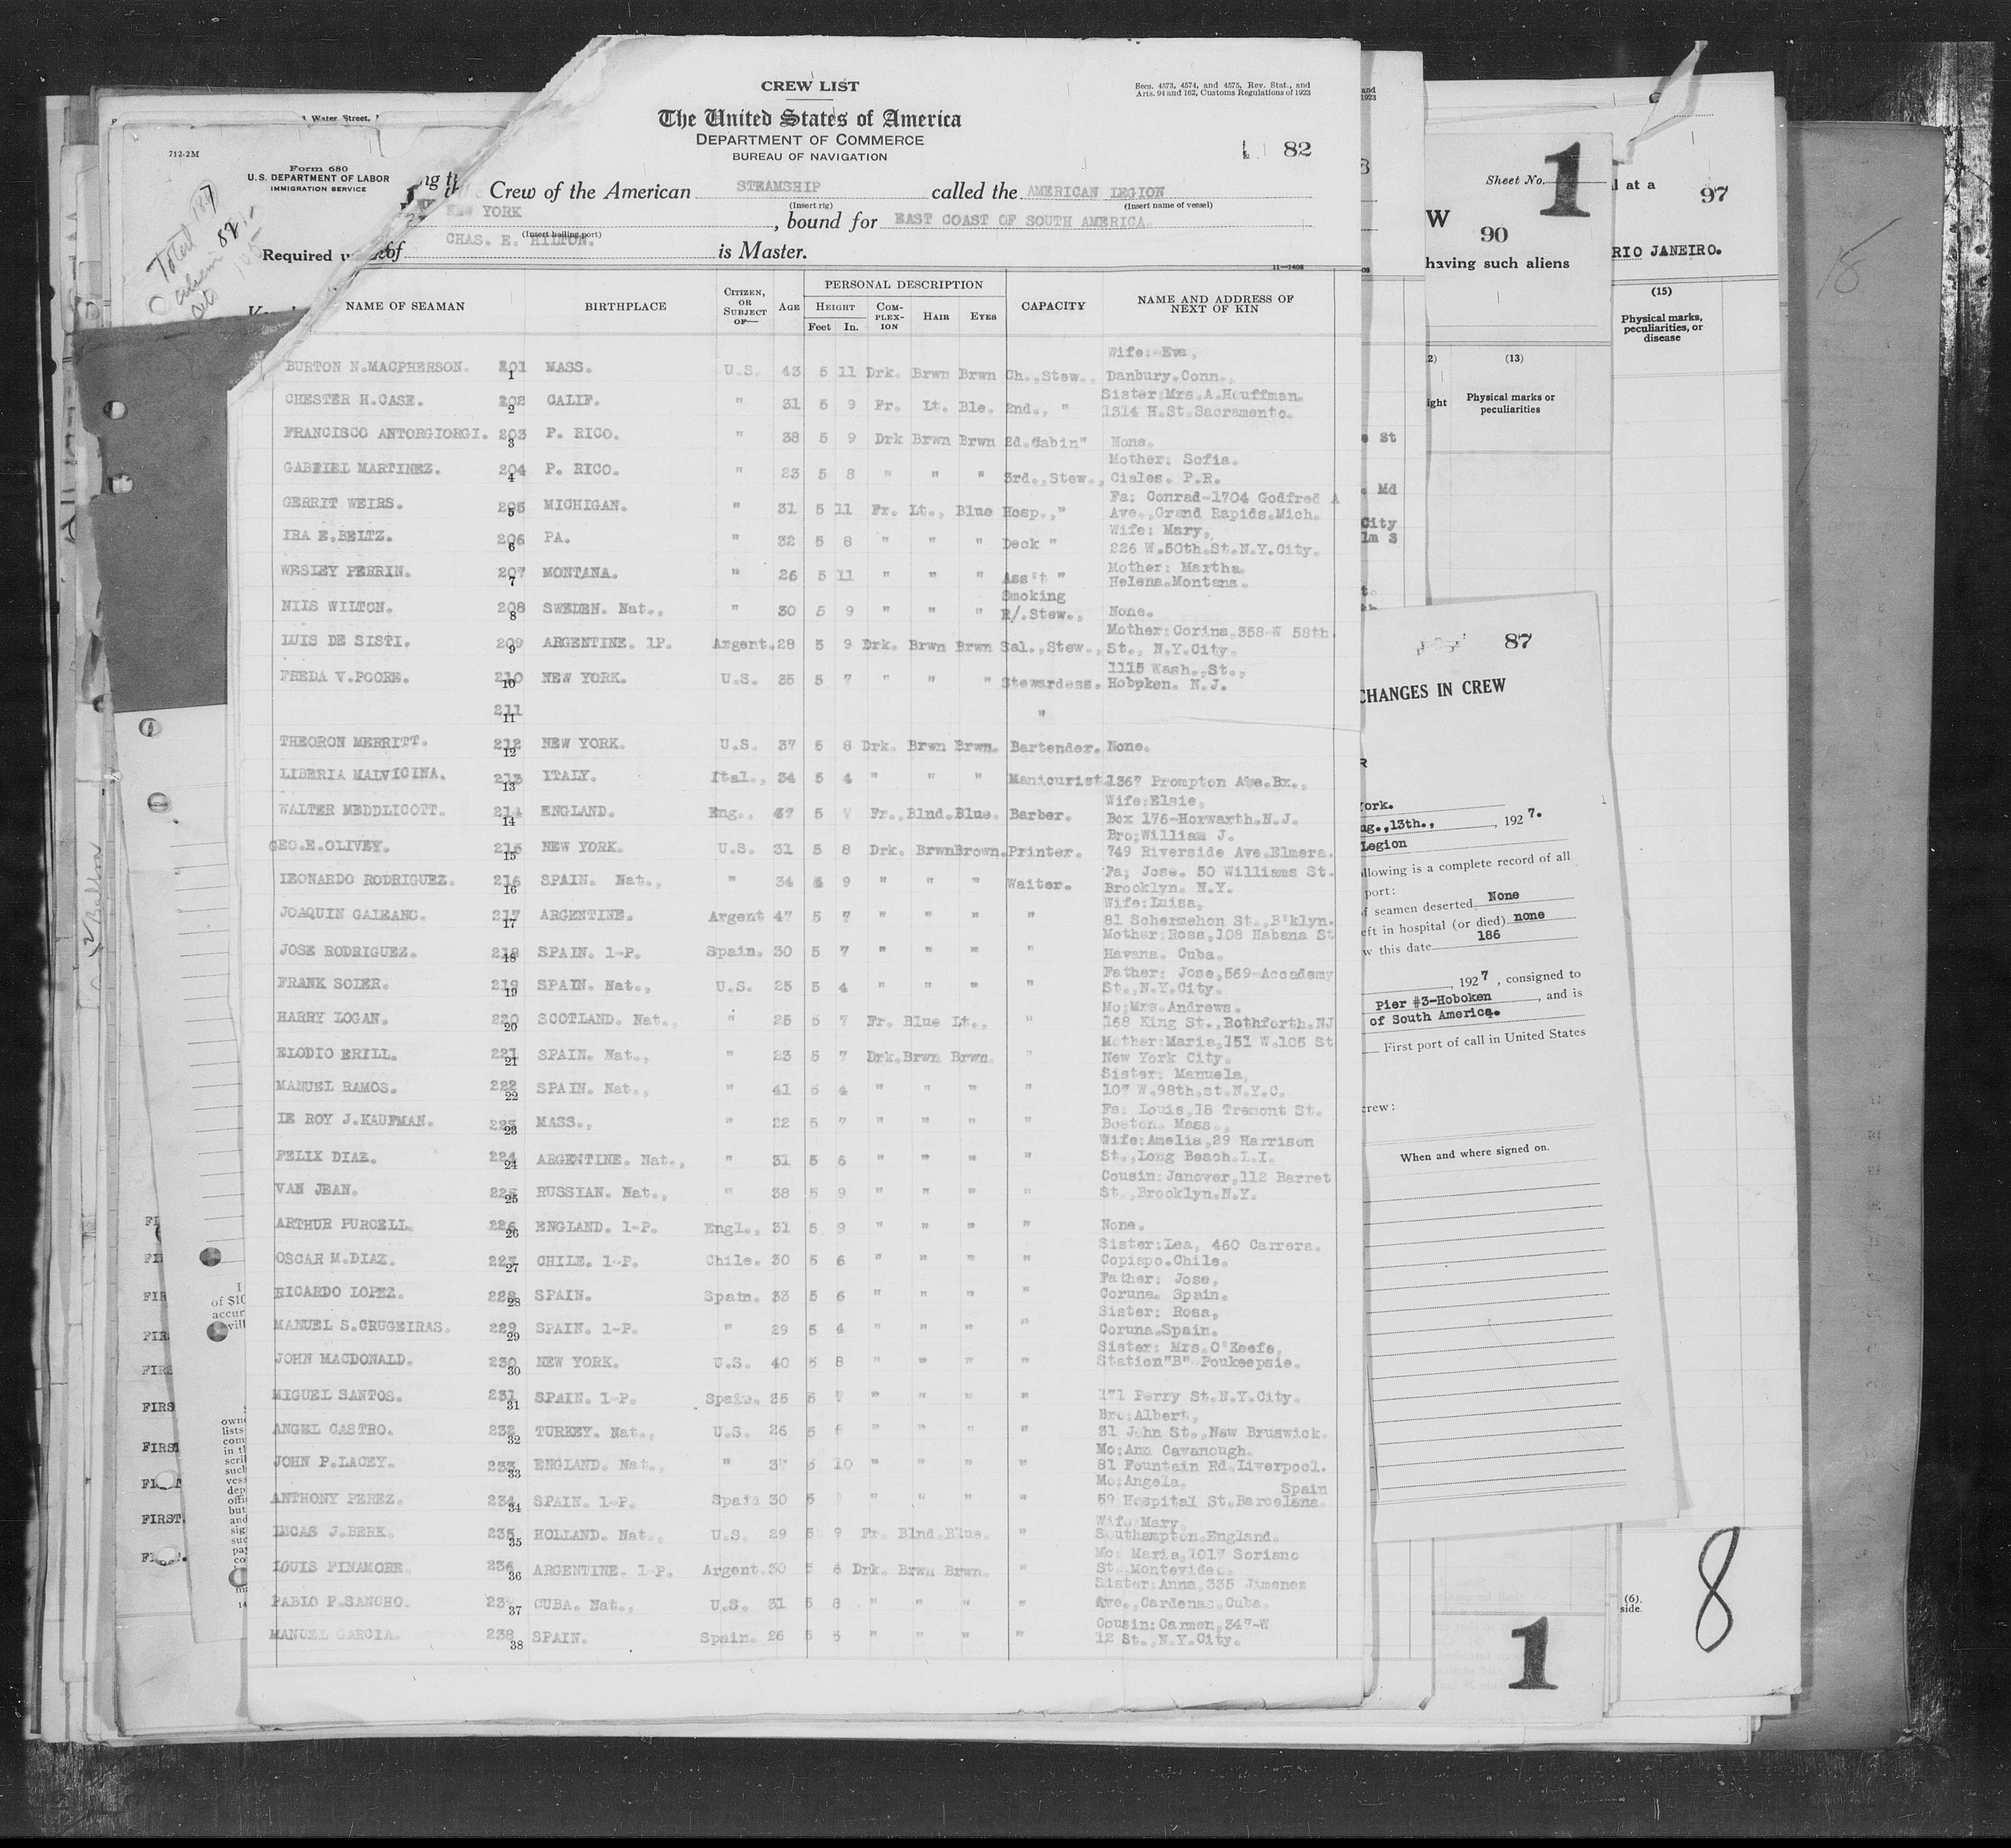 CREW LIST
Secs. 4573, 4574, and 4575, Rev. Stat., and
Arts. 94 and 162, Customs Regulations of 1923
The United States of America
DEPARTMENT OF COMMERCE
BUREAU OF NAVIGATION
82
Crew of the American STEAMSHIP called the AMERICAN LEGION
(Insert rig) (Insert name of vessel)
NEW YORK , bound for EAST COAST OF SOUTH AMERICA.
(Insert hailing port)
of CHAS. E. HILTON. is Master.
11—1408
NAME OF SEAMAN BIRTHPLACE CITIZEN, OR SUBJECT OF— AGE PERSONAL DESCRIPTION CAPACITY NAME AND ADDRESS OF NEXT OF KIN
HEIGHT COMPLEXION HAIR EYES
Feet In.
BURTON N.MACPHERSON. 201 1 MASS. U.S. 43 5 11 Drk. Brwn Brwn Ch.,Stew. Wife:-Eva, Danbury.Conn.,
CHESTER H.CASE. 202 2 CALIF. " 31 5 9 Fr. Lt. Ble. 2nd., " Sister:Mrs.A.Hauffman. 1314 H.St.Sacramento.
FRANCISCO ANTORGIORGI. 203 3 P. RICO. " 38 5 9 Drk Brwn Brwn 2d.Cabin" None.
GABRIEL MARTINEZ. 204 4 P. RICO. " 23 5 8 " " " 3rd.,Stew., Mother: Sofia. Ciales. P.R.
GERRIT WEIRS. 205 5 MICHIGAN. " 31 5 11 Fr. Lt., Blue Hosp.," Fa: Conrad-1704 Godfred A Ave.,Grand Rapids.Mich.
IRA E.BELTZ. 206 6 PA. " 32 5 8 " " " Deck " Wife: Mary, 226 W.50th.St.N.Y.City.
WESLEY PERRIN. 207 7 MONTANA. " 26 5 11 " " " Ass't " Mother: Martha. Helena.Montana.
NILS WILTON. 208 8 SWEDEN. Nat., " 30 5 9 " " " Smoking R/.Stew., None.
LUIS DE SISTI. 209 9 ARGENTINE. 1P. Argent. 28 5 9 Drk. Brwn Brwn Sal.,Stew., Mother:Corina.358-W 58th St., N.Y.City.
FREDA V.POORE. 210 10 NEW YORK. U.S. 35 5 7 " " " Stewardess. 1115 Wash.,St., Hobpken. N.J.
211 11 "
THEORON MERRITT. 212 12 NEW YORK. U.S. 37 5 8 Drk. Brwn Brwn. Bartender. None.
LIBERIA MALVICINA. 213 13 ITALY. Ital., 34 5 4 " " " Manicurist 1367 Prompton Ave.Bx.,
WALTER MEDDLICOTT. 214 14 ENGLAND. Eng., 37 5 7 Fr.,Blnd.Blue. Barber. Wife:Elsie, Box 176-Horwarth.N.J.
GEO.E.OLIVEY. 215 15 NEW YORK. U.S. 31 5 8 Drk. BrwnBrown. Printer. Bro;William J. 749 Riverside Ave.Elmera.
LEONARDO RODRIGUEZ. 216 16 SPAIN. Nat., " 34 5 9 " " " Waiter. Fa; Jose. 50 Williams St. Brooklyn. N.Y.
JOAQUIN GALEANO. 217 17 ARGENTINE. Argent 47 5 7 " " " " Wife:Luisa, 81 Schermehon St.,B'klyn.
JOSE RODRIGUEZ. 218 18 SPAIN. 1-P. Spain. 30 5 7 " " " " Mother:Rosa,108 Habana St Havana. Cuba.
FRANK SOLER. 219 19 SPAIN. Nat., U.S. 25 5 4 " " " " Father: Jose,569-Accademy St.,N.Y.City.
HARRY LOGAN. 220 20 SCOTLAND. Nat., " 25 5 7 Fr. Blue Lt., " Mo;Mrs.Andrews. 168 King St.,Rothforth.NJ
ELODIO ERILL. 221 21 SPAIN. Nat., " 23 5 7 Drk.Brwn Brwn. " Mother:Maria,151 W.105 St New York City.
MANUEL RAMOS. 222 22 SPAIN. Nat., " 41 5 4 " " " " Sister: Manuela, 107 W.98th.st.N.Y.C.
LE ROY J.KAUFMAN. 223 23 MASS., " 22 5 7 " " " " Fa: Louis,18 Tremont St. Boston. Mass.,
FELIX DIAZ. 224 24 ARGENTINE. Nat., " 31 5 6 " " " " Wife:Amelia,29 Harrison St.,Long Beach.L.I.
VAN JEAN. 225 25 RUSSIAN. Nat., " 38 5 9 " " " " Cousin:Janover,112 Barret St.,Brooklyn.N.Y.
ARTHUR PURCELL. 226 26 ENGLAND. 1-P. Engl., 31 5 9 " " " " None.
OSCAR M.DIAZ. 227 27 CHILE. 1-P. Chile. 30 5 6 " " " " Sister:Lea, 460 Carrera. Copiapo.Chile.
RICARDO LOPEZ. 228 28 SPAIN. Spain. 33 5 6 " " " " Father: Jose, Coruna. Spain.
MANUEL S.CRUGEIRAS. 229 29 SPAIN. 1-P. " 29 5 4 " " " " Sister: Rosa, Coruna.Spain.
JOHN MACDONALD. 230 30 NEW YORK. U.S. 40 5 8 " " " " Sister: Mrs.O'Keefe, Station"B" Poukeepsie.
MIGUEL SANTOS. 231 31 SPAIN. 1-P. Spain. 35 5 7 " " " " 171 Perry St.N.Y.City.
ANGEL CASTRO. 232 32 TURKEY. Nat., U.S. 26 5 6 " " " " Bro:Albert, 31 John St.,New Bruswick.
JOHN P.LACEY. 233 33 ENGLAND. Nat., " 5 10 " " " " Mo:Ann Cavanough. 81 Fountain Rd.Liverpool.
ANTHONY PEREZ. 234 34 SPAIN. 1-P. Spain 30 5 " " " " Mo:Angela, Spain 59 Hospital St.Barcelona.
LUCAS J.BERK. 235 35 HOLLAND. Nat., U.S. 29 5 9 Fr. Blnd.Blue. " Wife:Mary, Southampton.England.
LOUIS FINAMORE. 236 36 ARGENTINE. 1-P. Argent. 30 5 6 Drk. Brwn Brwn. " Mo: Maria,1017 Soriano St.Montevideo.
PABLO P.SANCHO. 237 37 CUBA. Nat., U.S. 31 5 8 " " " " Sister:Anna,335 Jimenez Ave.,Cardenas.Cuba.
MANUEL GARCIA. 238 38 SPAIN. Spain. 26 5 5 " " " " Cousin:Carmen,347-W 12 St.,N.Y.City.
Water Street,
712-2M
Form 680
U.S. DEPARTMENT OF LABOR
IMMIGRATION SERVICE
Total 187
82
105
Required
Sheet No. 1
W
90
having such aliens
(13)
Physical marks or
peculiarities
at a
97
RIO JANEIRO.
(15)
Physical marks,
peculiarities, or
disease
St
Md
City
87
CHANGES IN CREW
ork.
ug.,13th., , 1927.
Legion
ollowing is a complete record of all
port:
of seamen deserted, None
eft in hospital (or died) none
w this date 186
, 1927, consigned to
Pier #3-Hoboken , and is
of South America.
First port of call in United States
crew:
When and where signed on.
(6).
side.
8
1
18
FIRST
FIRST
FIRST.